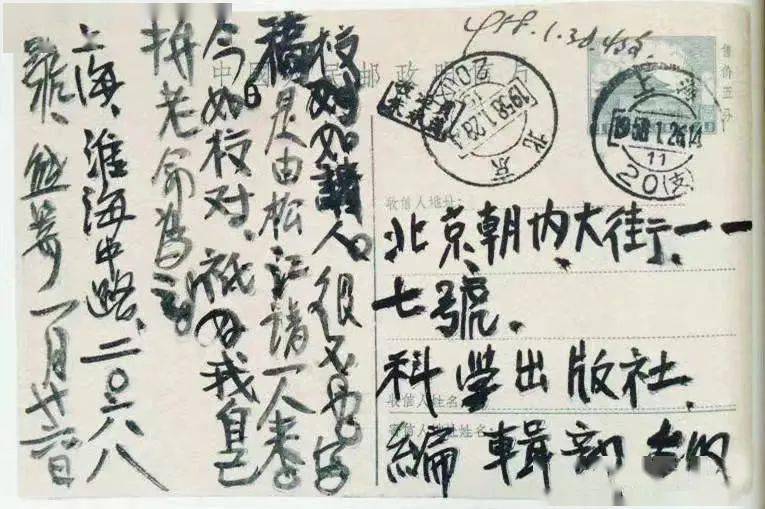 中國人民邮政明信片
售价五分
上海
1958.1.26.14
11
20(支)
北京
1958.1.28
收信人地址:
北京、朝内大街、一一
七號、
科學出版社、
收信人姓名
編輯部
寄信人地址姓名:
校对如請人。很不易。字
稿是由松江請一人来
今如校对、祇如我自己
拚老命為
上海、淮海中路、二〇六八
號、熊寄 一月廿六日